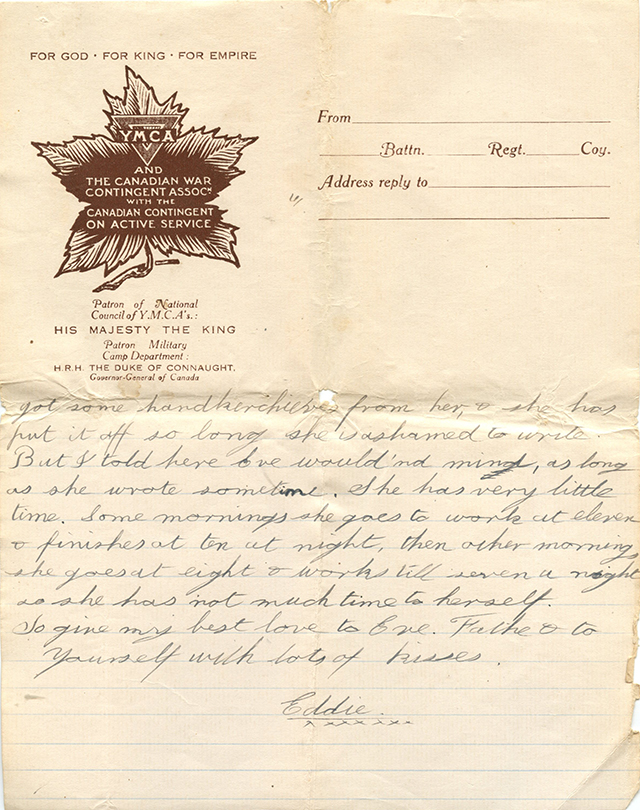 FOR GOD · FOR KING · FOR EMPIRE
YMCA
AND
THE CANADIAN WAR
CONTINGENT ASSOCN
WITH THE
CANADIAN CONTINGENT
ON ACTIVE SERVICE
Patron of National
Council of Y.M.C.A's.:
HIS MAJESTY THE KING
Patron Military
Camp Department:
H.R.H. THE DUKE OF CONNAUGHT,
Governor-General of Canada
From
Battn. Regt. Coy.
Address reply to
got some handkerchieves from her, & she has
put it off so long she is ashamed to write.
But I told here Eve would'nd mind, as long
as she wrote sometime. She has very little
time. Some mornings she goes to work at eleven
& finishes at ten at night, then other morning
she goes at eight & works till seven a night
so she has not much time to herself.
So give my best love to Eve. Fathe & to
Yourself with lots of kisses.
Eddie.
x x x x x x x